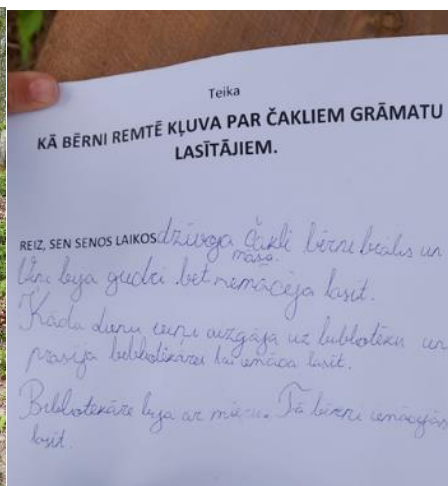 Teika
KĀ BĒRNI REMTĒ KĻUVA PAR ČAKLIEM GRĀMATU
LASĪTĀJIEM.
REIZ, SEN SENOS LAIKOS dzīvoja čakli bērni brālis un
māsa.
Viņi bija gudri bet nemācēja lasīt.
Kādu dienu viņi aizgāja uz bublotēku un
prasīja bebliotikārei lai iemāca lasīt.
Bibliotekāre bija ar mieru. Tā bērni iemācījās
lasīt.